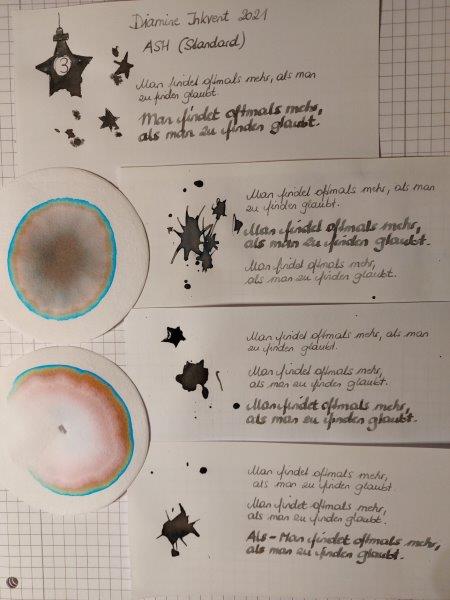 Diamine Inkvent 2021
ASH (Standard)
3
Man findet oftmals mehr, als man
zu finden glaubt.
Man findet oftmals mehr,
als man zu finden glaubt.
Man findet oftmals mehr, als man
zu finden glaubt.
Man findet oftmals mehr,
als man zu finden glaubt.
Man findet oftmals mehr,
als man zu finden glaubt.
Man findet oftmals mehr, als man
zu finden glaubt.
Man findet oftmals mehr,
als man zu finden glaubt.
Man findet oftmals mehr,
als man zu finden glaubt.
Man findet oftmals mehr,
als man zu finden glaubt.
Man findet oftmals mehr,
als man zu finden glaubt.
Als - Man findet oftmals mehr,
als man zu finden glaubt.